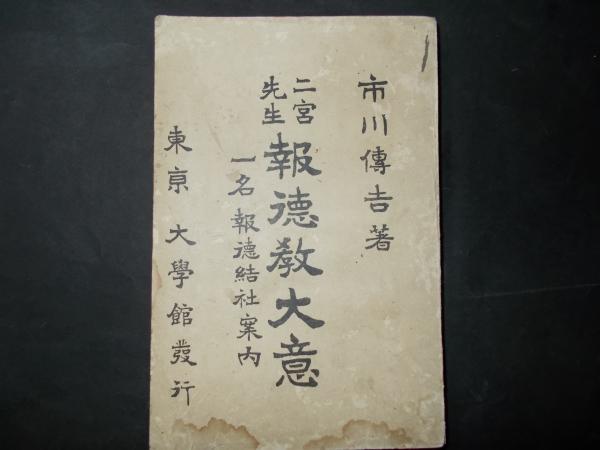 市川傳吉著
二宮先生
報德教大意
一名報德結社案内
東京大學館發行